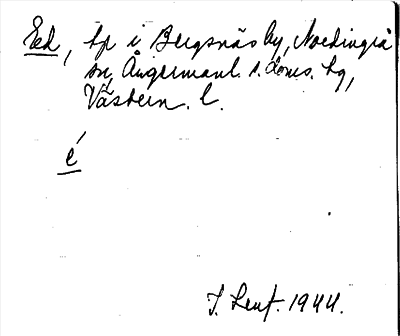 Eed, tp i Bergsnäs by, Nordingrå
sn, Ångermanl. s. doms. tg,
Västern. l.
é
J. Lenf. 1944.